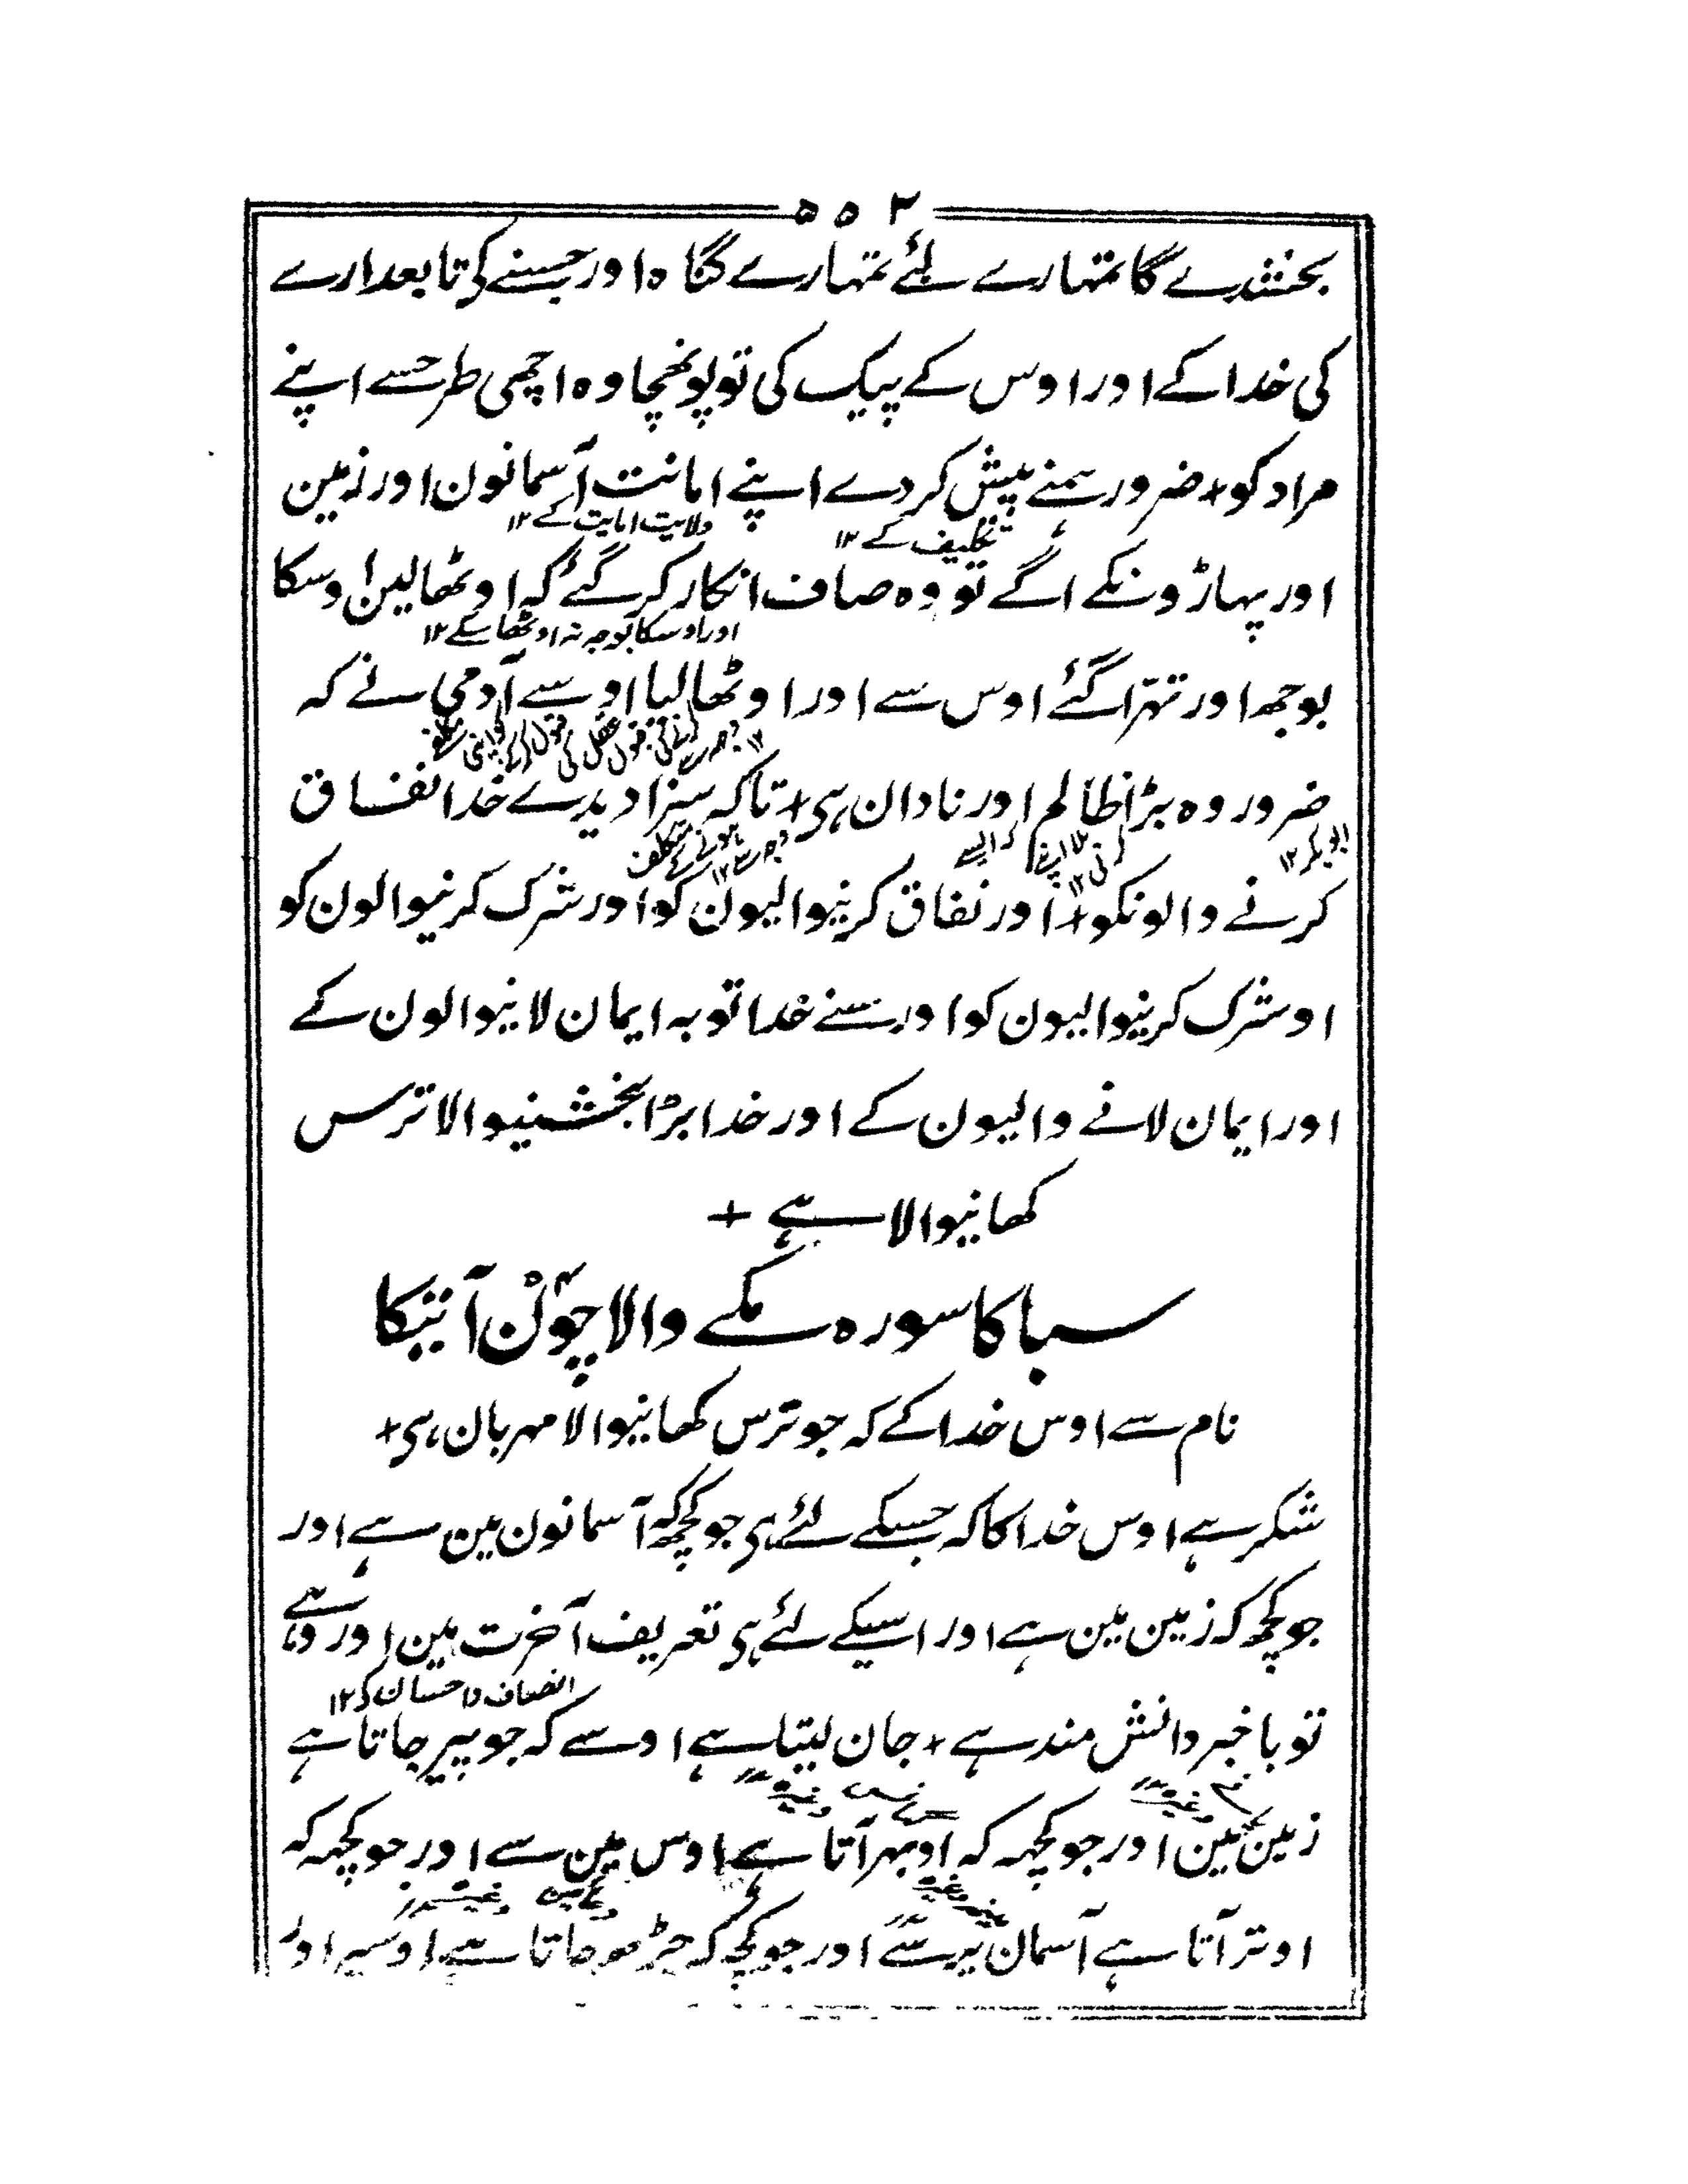 ۵۵۲
بخشدے گا تمہارے لئے تمہارے گناہ اور جسنے کی تابعدارے
کی خدا کے اور اوس کے پیک کی تو پونھچا وہ اچھی طرحسے اپنے
مراد کو + ضرور ہمنے پیش کردے اپنے امانت آسمانون اور زمین
تکلیف کے ۱۲ ولایت امامت کے ۱۲
اور پہاڑونکے اگے تو وہ صاف انکار کر گئے کہ اوٹھالین اوسکا
اور اوسکا بوجہ نہ اوٹھا سکے ۱۲
بوجھ اور تھرّا گئے اوس سے اور اوٹھالیا اوسے آدمی نے کہ
ضرور وہ بڑا ظالم اور نادان ہی + تاکہ سزا دیدے خدا نفاق
کرنے والونکو + اور نفاق کرنیوالیون کو اور شرک کرنیوالون کو
او شرک کرنیوالیون کو اور سنے خدا توبہ ایمان لانیوالون کے
اور ایمان لانے والیون کے اور خدا بڑا بخشنیوالا ترس
کھانیوالا ہے +
سبا کا سورہ مکے والا چوّن آیتکا
نام سے اوس خدا کے کہ جو ترس کھانیوالا مہربان ہی +
شکر ہے اوس خدا کا کہ جسکے لئے ہی جو کچھ کہ آسمانون مین ہے اور
جو کچھ کہ زمین مین ہے اور اسیکے لئے ہی تعریف آخرت مین اور وہی
انصاف و احسان کی ۱۲
تو باخبر دانش مند ہے + جان لیتا ہے اوسے کہ جو پیر جاتا ہے
زمین مین اور جو کچھہ کہ اوبھر آتا ہے اوس مین سے اور جو کچھہ کہ
اوتر آتا ہے آسمان پر سے اور جو کچھ کہ چڑھ جاتا ہے اوسپر اور